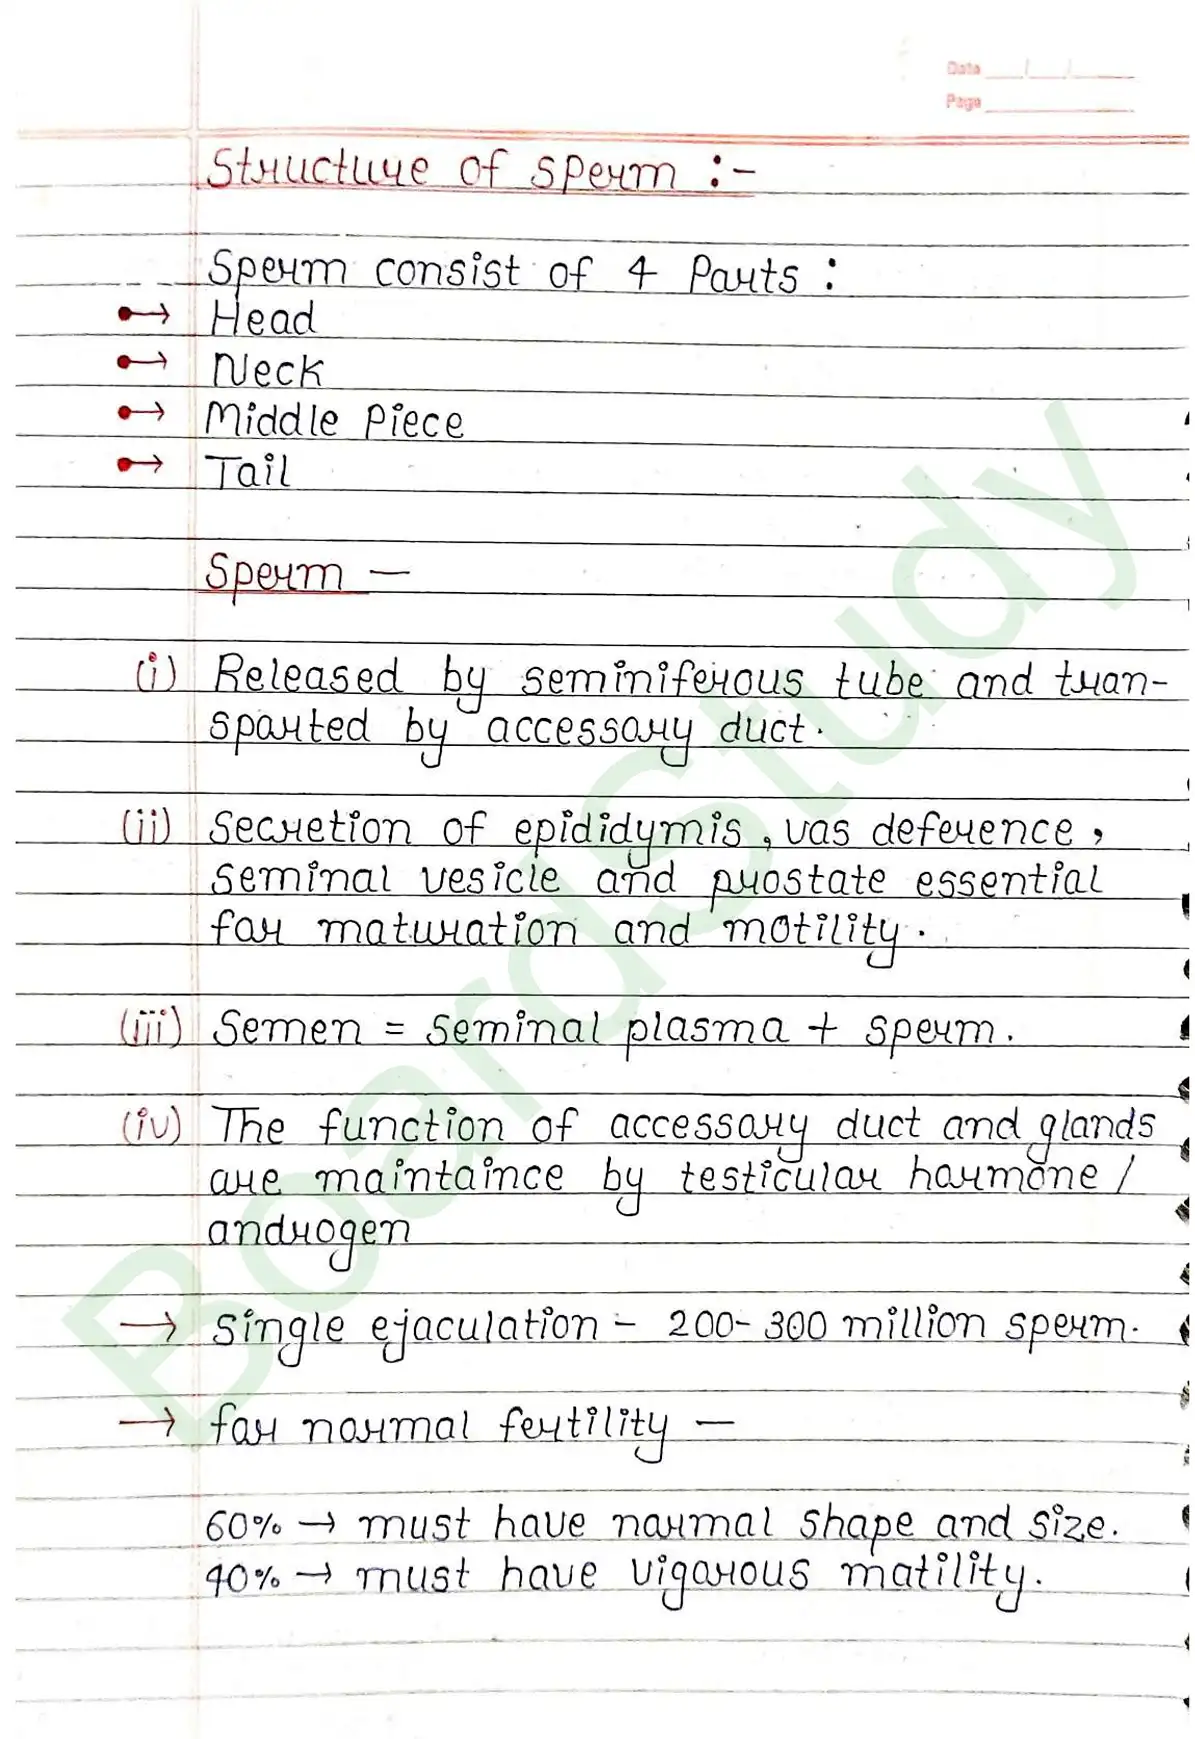 Date
Page
Structure of sperm :-
Sperm consist of 4 Parts :
Head
Neck
Middle Piece
Tail
Sperm —
(i) Released by seminiferous tube and tran-
sported by accessory duct.
(ii) Secretion of epididymis, vas deference,
seminal vesicle and prostate essential
for maturation and motility.
(iii) Semen = seminal plasma + sperm.
(iv) The function of accessory duct and glands
are maintaince by testicular hormone /
androgen
→ Single ejaculation - 200-300 million sperm.
→ for normal fertility —
60% → must have normal shape and size.
40% → must have vigorous matility.
BoardStudy